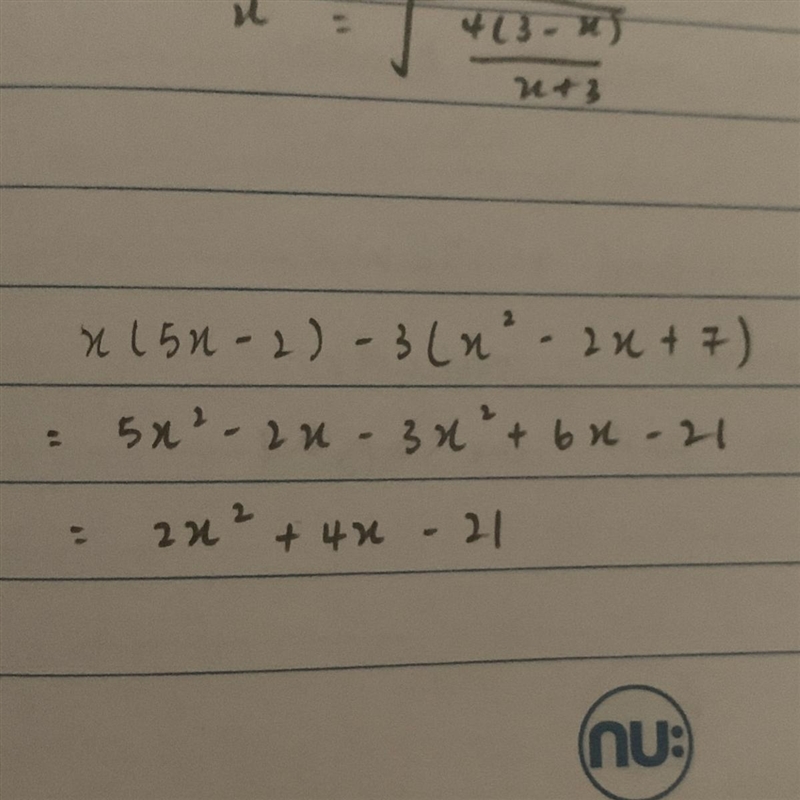 x = √(4(3 - x) / (x + 3))
x(5x - 2) - 3(x² - 2x + 7)
= 5x² - 2x - 3x² + 6x - 21
= 2x² + 4x - 21
nu: